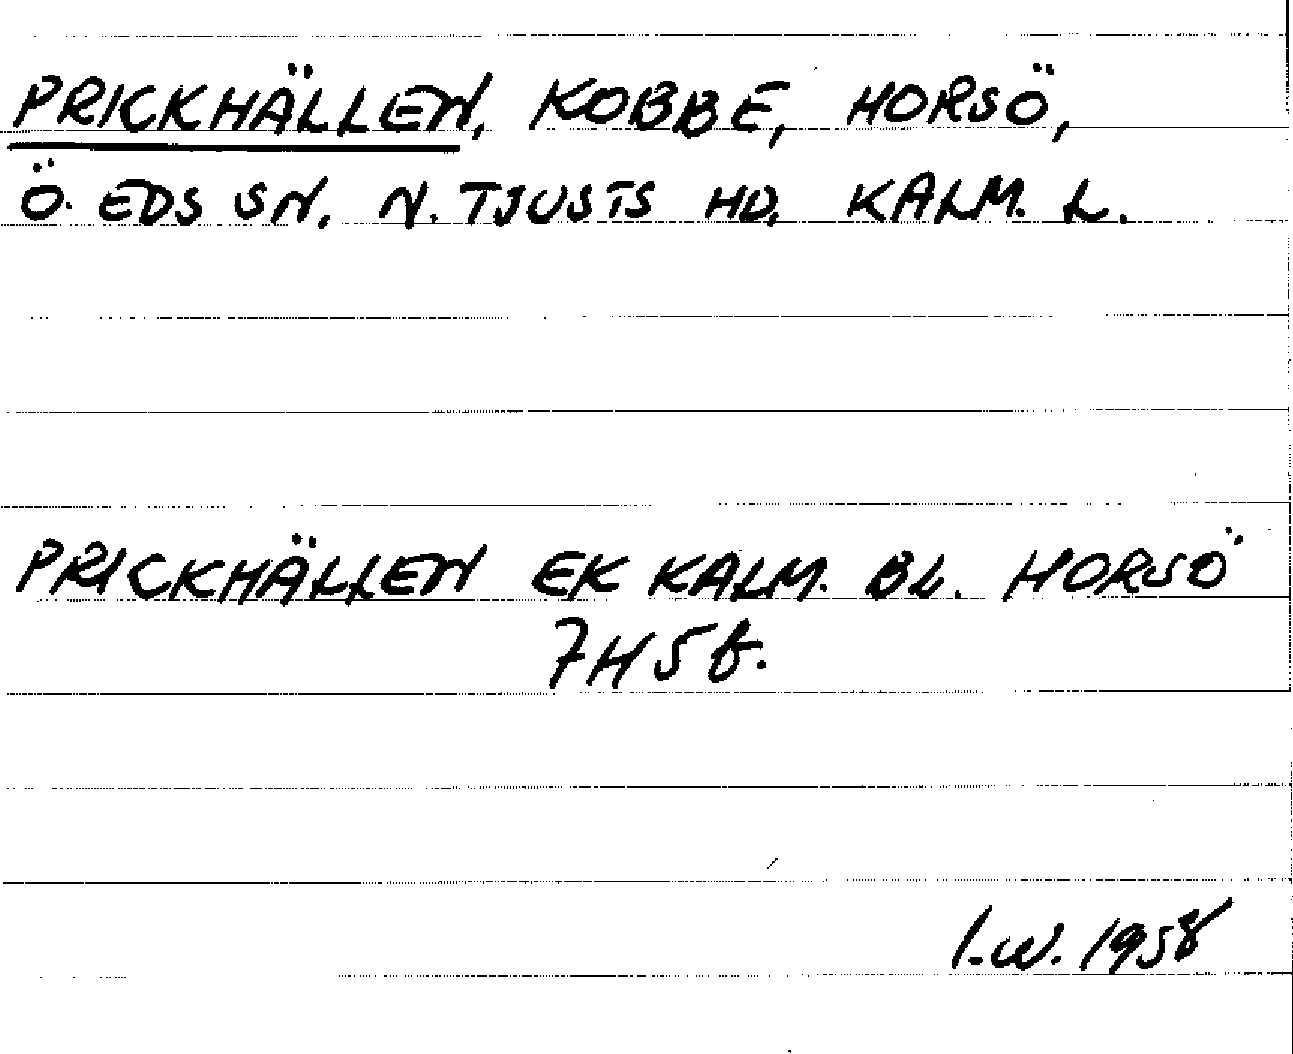 PRICKHÄLLEN, KOBBE, HORSÖ,
Ö. EDS SN, N. TJUSTS HD, KALM. L.
PRICKHÄLLEN EK KALM. BL. HORSÖ
7H5f.
I.W. 1958